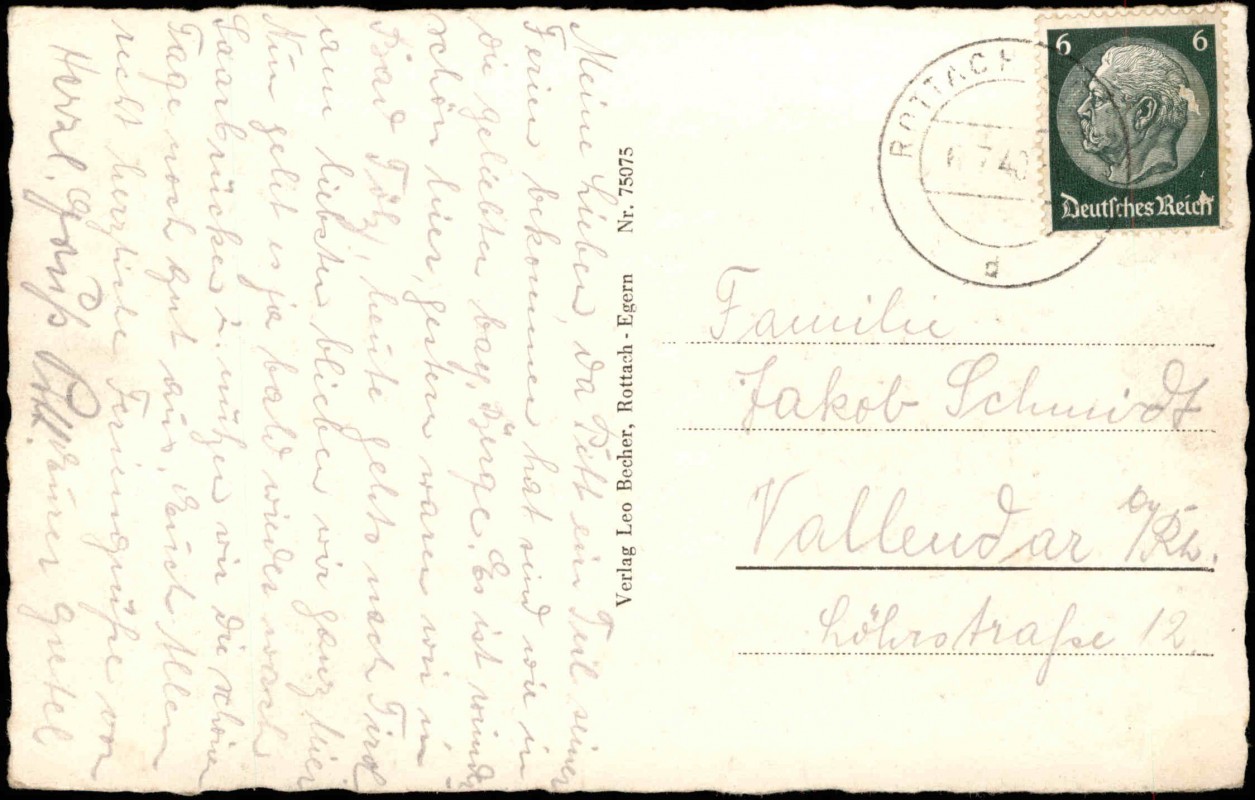 Meine Lieben, da Pitt ein Teil seiner
Ferien bekommen hat sind wir in
die geliebten bay. Berge. Es ist wunder
schön hier, gestern waren wir in
Bad Tölz, heute gehts nach Tirol
am liebsten blieben wir ganz hier
Nun geht es ja bald wieder nach
Saarbrücken u. nutzen wir die schönen
Tage noch gut aus. Euch Allen
recht herzliche Feriengrüße von
Eurer Gretel
Herzl. Gruß Pitt.
Verlag Leo Becher, Rottach - Egern Nr. 75075
ROTTACH
7.40
a
6 6
Deutsches Reich
Familie
Jakob Schmidt
Vallendar a/Rh.
Löhrstraße 12.